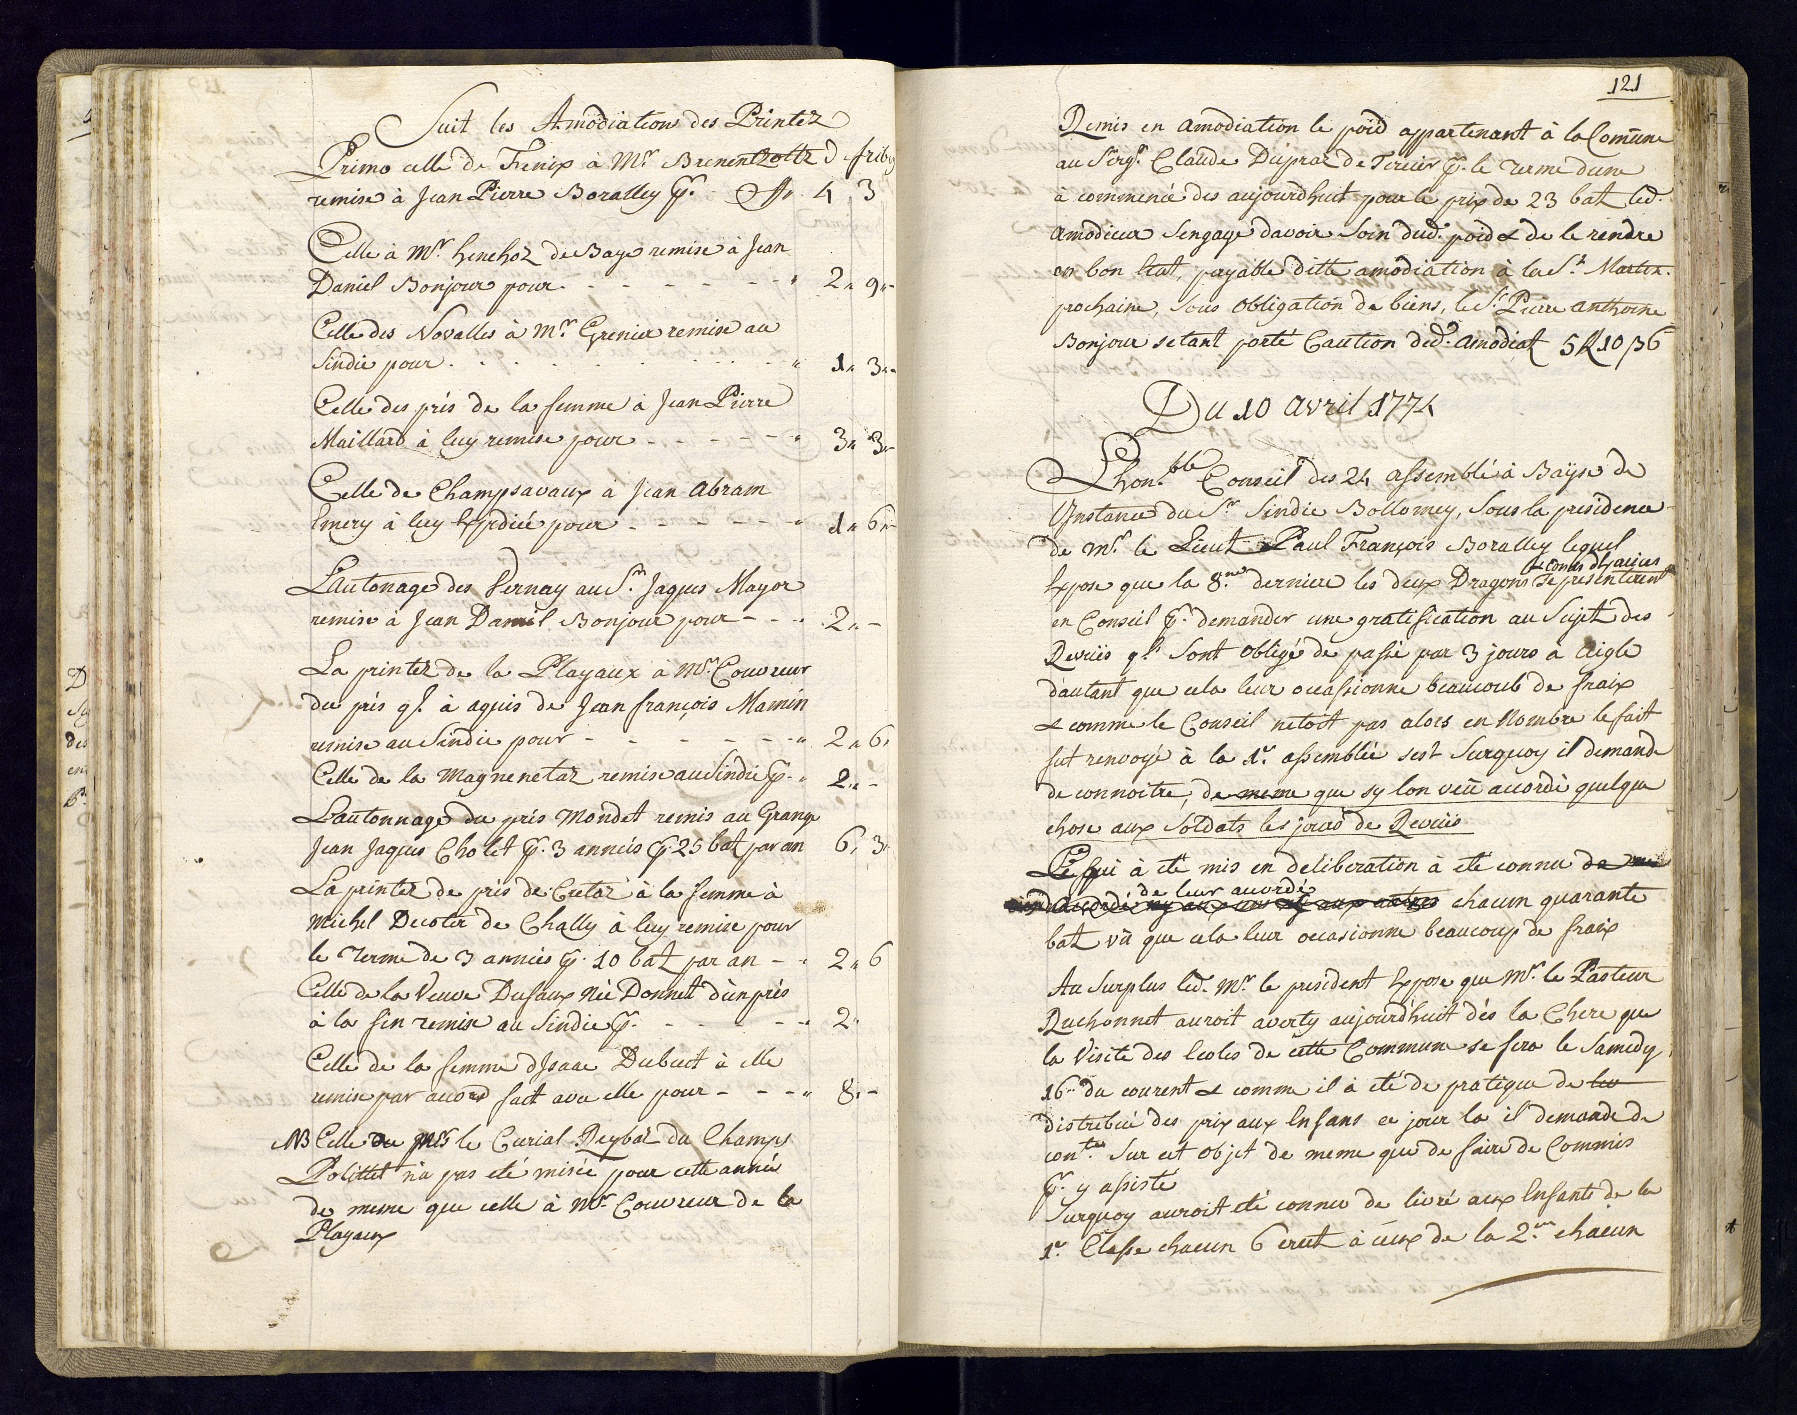 Suit les Amodiations des Printez
Primo celle de Frenix à Mr. Brenentzoltz
remise à Jean Pierre Boralley pr. 4 3
Celle à Mr. henchoz de Baye remise à Jean
Daniel Bonjour pour - - - - - - " 2 " 9 " -
Celle des Novalles à Mr. Grenier remise au
Sindic pour . . . . . . . " 1 " 3 " -
Celle des prés de la femme à Jean Pierre
Maillard à luy remise pour - - - - - " 3 " 3 " -
Celle de Champsavaux à Jean Abram
Emery à luy Expédiée pour - - - - - - " 1 " 6 " -
Lautonage des Vernay au Sr. Jaques Mayor
remise à Jean Daniel Bonjour pour - - - " 2 " -
La printez de la Playaux à Mr. Couvreur
du prés ql. à aquis de Jean françois Mamin
remise au Sindic pour - - - - - - " 2 " 6 "
Celle de la Magnenetaz remise au Sindic pr. - " 2 " -
Lautonnage du prés Mondet remis au Grange
Jean Jaques Cholet pr. 3 années pr. 25 bat par an 6 " 3 "
La printez de prés de Cretaz à la femme à
Michel Decoter de Chally à luy remise pour
le Terme de 3 années pr. 10 bat par an - " 2 " 6
Celle de la Veuve Dufaux Née Donnet d'un prés
à la fin remise au Sindic pr. - - - - - " 2 "
Celle de la femme d'Isaac Dubuet à elle
remise par accord fait avec elle pour - - - " 8 " -
NB Celle du prés le Curial Deybaz du Champ
Polittet n'a pas été misée pour cette année
de meme que celle à Mr. Couvreur de la
Playaux
121
Remis en amodiation le poid appartenant à la Comune
au Sergt. Claude Dupraz de Tercier pr. le Terme dune
à commencé des aujourdhuit pour le prix de 23 bat led.
amodieur sengage davoir Soin dud. poid & de le rendre
en bon Etat, payable ditte amodiation à la St. Martin
prochaine, sous obligation de biens, le Sr. Pierre anthoine
Bonjour setant porté Caution dud. amodiat 5 10 6
Du 10 Avril 1774
Lhon.ble Conseil des 24 assemblé à Bayse de
Instance du Sr. Sindic Bollomey, Sous la presidence
de Mr. le Lieut Paul François Boralley lequel
Expose que la 8.ne derniere les deux Dragons se presenterent
en Conseil pr. demander une gratification au Sujet des
Revües ql. Sont obligé de passé par 3 jours à Aigle
dautant que cela leur occasionne beaucoub de fraix
& comme le Conseil netoit pas alors en Nombre le fait
fut renvoyé à la 1r. assemblée sest Surquoy il demande
de connoitre, de meme que sy lon veut accordé quelque
chose aux Soldats les jours de Revües
Ce qui à été mis en deliberation à été connu
de leur accordé
chacun quarante
bat vû que cela leur occasionne beaucoup de fraix
Au Surplus led. Mr. le president Expose que Mr. le Pasteur
Ruchonnet auroit averty aujourdhuit dés la Chere que
la Visite des Ecoles de cette Commune se fera le Samedy
16. du courent & comme il à été de pratique de
distribuée des prix aux Enfans ce jour la il demande de
con.tre Sur cet objet de meme que de faire de Commis
pr. y assisté
Surquoy auroit été connu de livré aux Enfants de la
1r. Classe chacun 6 crut à ceux de la 2.me chacun